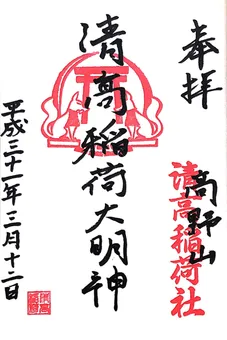 奉拝
高野山
清高稲荷社
清高稲荷大明神
平成三十一年三月十二日